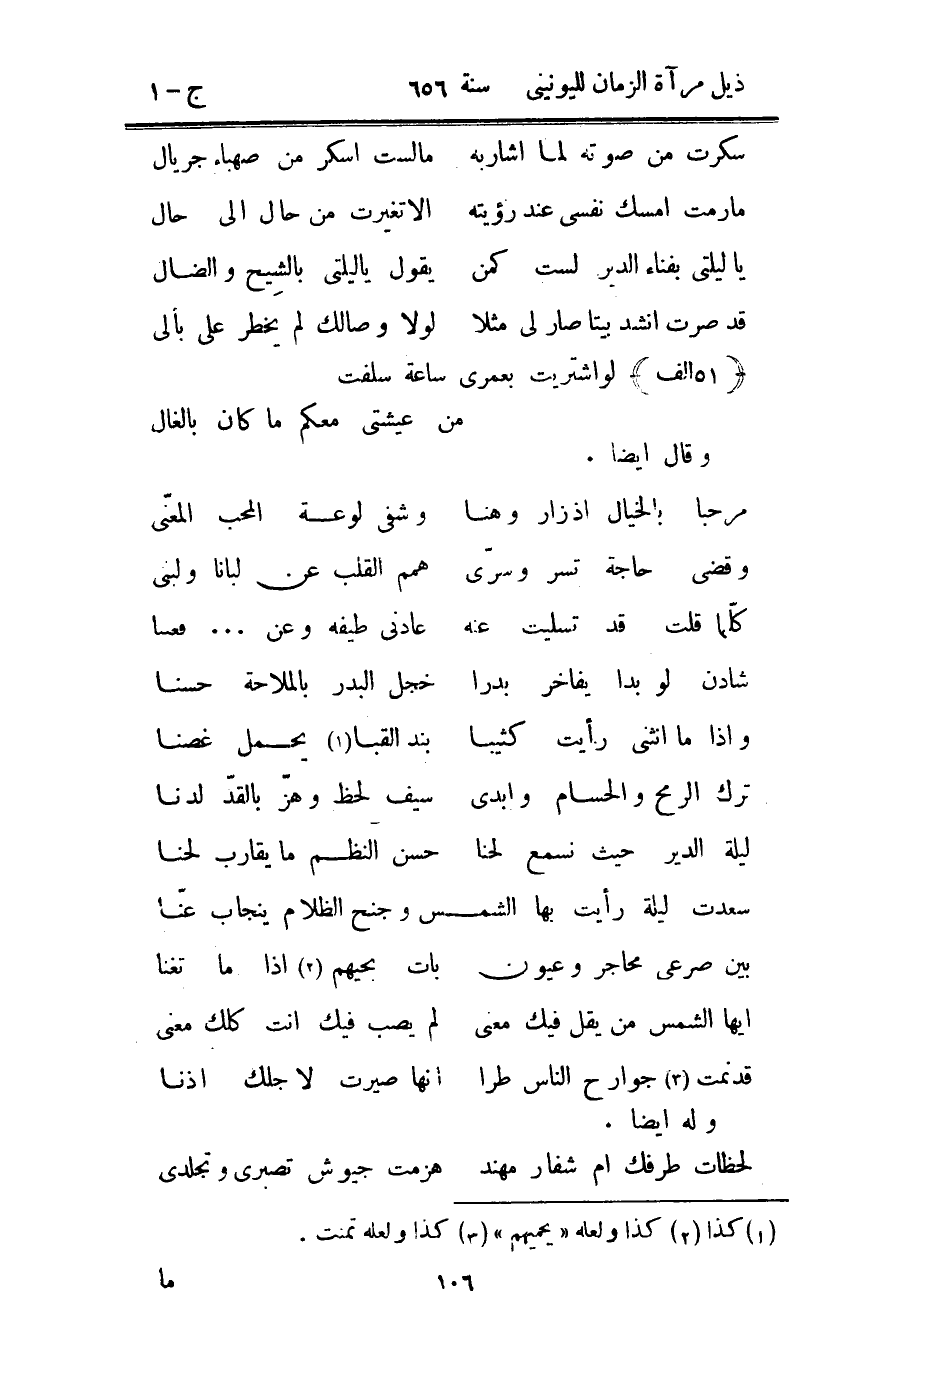 ذيل مرآة الزمان لليونينى سنة ٦٥٦ ج - ١
سكرت من صوته لما اشار به مالست اسكر من صهباء جريال
مارمت امسك نفسى عند رؤيته الا تغيرت من حال الى حال
يا ليلتى بفناء الدير لست كمن يقول ياليلتى بالشيح والضال
قد صرت انشد بيتا صار لى مثلا لولا وصالك لم يخطر على بألى
﴿٥١ الف﴾ لو اشتريت بعمرى ساعة سلفت
من عيشتى معكم ما كان بالغال
وقال ايضا .
مرحبا بالخيال اذ زار وهنا وشفى لوعة المحب المعنّى
وقضى حاجة تسر وسرّى همم القلب عن لبانا ولبنى
كلّما قلت قد تسليت عنه عادنى طيفه وعن ... فعسا
شادن لو بدا يفاخر بدرا خجل البدر بالملاحة حسنا
واذا ما انثنى رأيت كثيبا بند القبا (١) يحمل غصنا
ترك الرمح والحسام وابدى سيف لحظ وهزّ بالقدّ لدنا
ليلة الدير حيث نسمع لحنا حسن النظم ما يقارب لحنا
سعدت ليلة رأيت بها الشمس وجنح الظلام ينجاب عنّا
بين صرعى محاجر وعيون بات بحيهم (٢) اذا ما تغنا
ايها الشمس من يقل فيك معنى لم يصب فيك انت كلك معنى
قدنمت (٣) جوارح الناس طرا أنها صيرت لاجلك اذنا
وله ايضا .
لحظات طرفك ام شفار مهند هزمت جيوش تصبرى وتجلدى
(١) كذا (٢) كذا ولعله « يحييهم » (٣) كذا ولعله تمنت .
١٠٦ ما